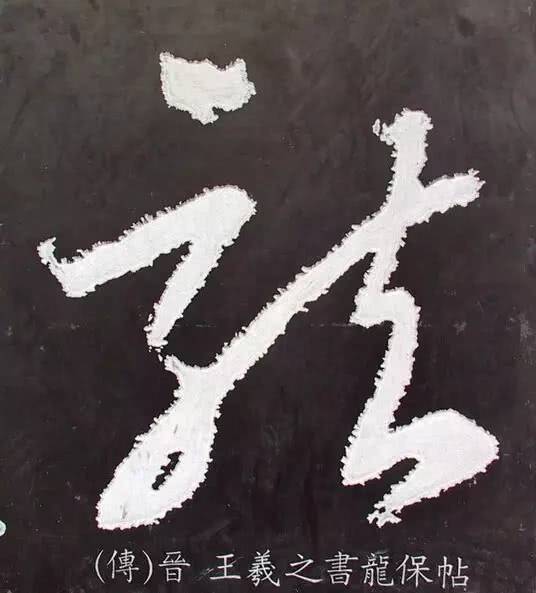 龍
(傳)晉 王羲之書龍保帖